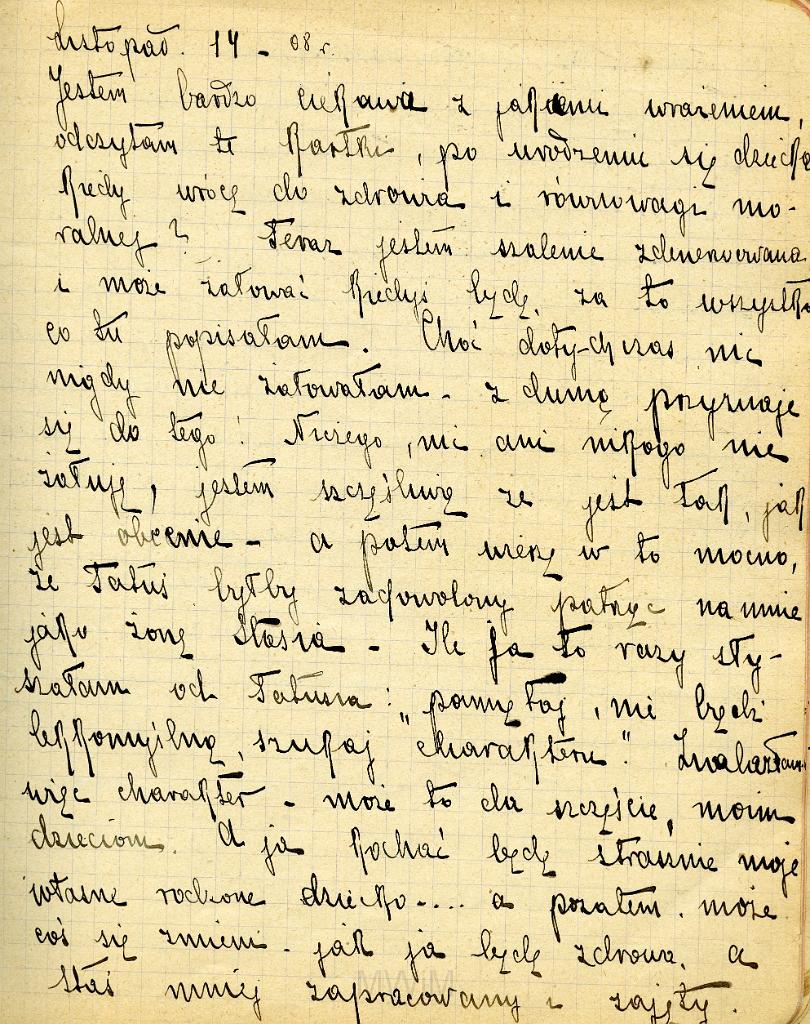 Listopad. 14 - 08 r.
Jestem bardzo ciekawa z jakiemi wrażeniem,
odczytam te kartki, po urodzeniu się dziecka
kiedy wrócę do zdrowia i równowagi mo-
ralnej? Teraz jestem szalenie zdenerwowana
i może żałować kiedyś będę, za to wszystko
co tu popisałam. Choć dotychczas nic
nigdy nie żałowałam - z dumą przyznaję
się do tego! Niczego, nic ani nikogo nie
żałuję, jestem szczęśliwą że jest tak, jak
jest obecnie - a potem wierzę w to mocno,
że Tatuś byłby zadowolony patrząc na mnie
jako żonę Stasia - Ile ja to razy sły-
szałam od Tatusia: „pamiętaj, nie bądź
lekkomyślną, szukaj charakteru." Znalazłam
więc charakter - może to da szczęście, moim
dzieciom. A ja kochać będę strasznie moje
własne rodzone dziecko.... a pozatem. może
coś się zmieni - jak ja będę zdrowa, a
Staś mniej zapracowany i zajęty.
MWiM